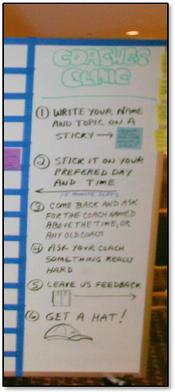 COACHES
CLINIC
① WRITE YOUR NAME
AND TOPIC ON A
STICKY →
② STICK IT ON YOUR
PREFERED DAY
AND TIME
15 MINUTE SLOTS
③ COME BACK AND ASK
FOR THE COACH NAMED
ABOVE THE TIME, OR
ANY OLD COACH
④ ASK YOUR COACH
SOMETHING REALLY
HARD
⑤ LEAVE US FEEDBACK
⑥ GET A HAT!